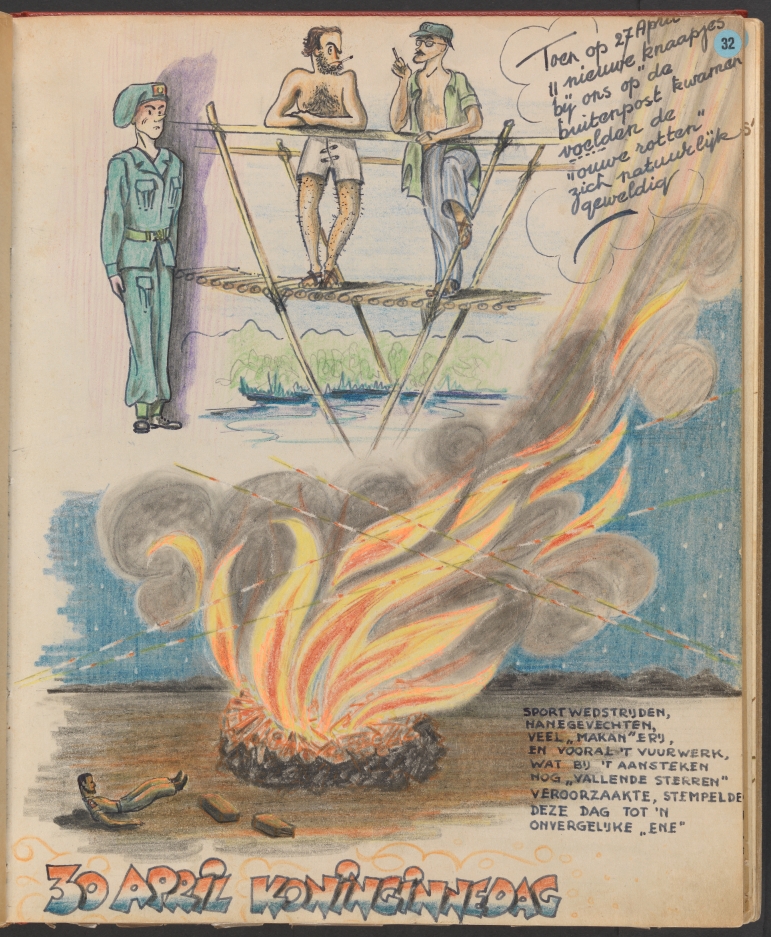 32
Toen op 27 April
"nieuwe" knaapjes
bij ons op "de
buitenpost" kwamen
voelden de
"ouwe rotten"
zich natuurlijk
geweldig
SPORTWEDSTRIJDEN,
HANEGEVECHTEN,
VEEL „MAKAN"ERIJ,
EN VOORAL 'T VUURWERK,
WAT BIJ 'T AANSTEKEN
NOG „VALLENDE STERREN"
VEROORZAAKTE, STEMPELDE
DEZE DAG TOT 'N
ONVERGELIJKE „ENE"
30 APRIL KONINGINNEDAG